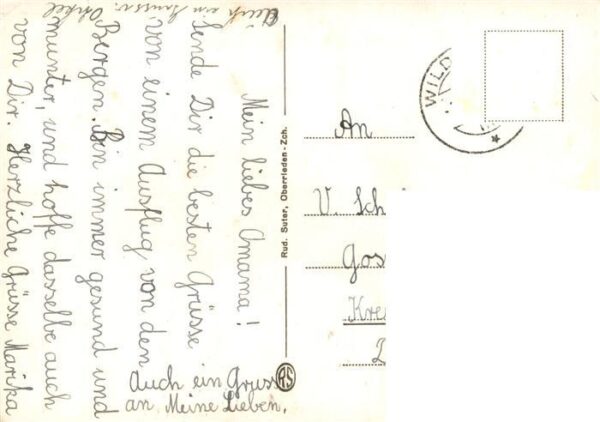 Mein liebes Omama!
Sende Dir die besten Grüsse
von einem Ausflug von den
Bergen. Bin immer gesund und
munter, und hoffe dasselbe auch
von Dir. Herzliche Grüsse Marika
Auch ein Gruss
an Meine Lieben.
Auch ein
Rud. Suter, Oberrieden-Zch.
RS
An
V. Sch
Gos
Kre
WILD